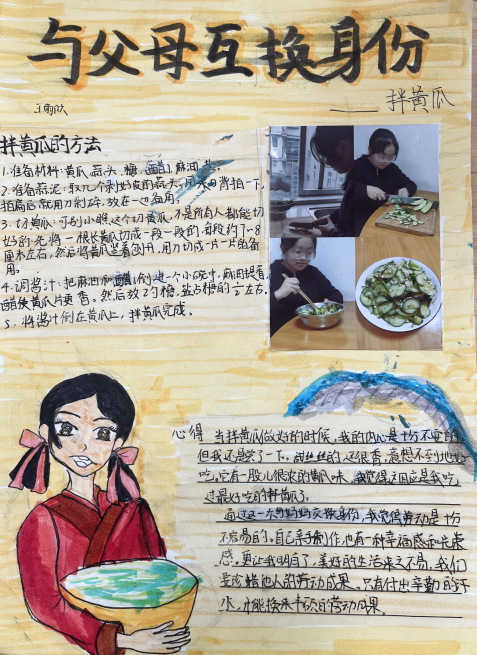 与父母互换身份
——拌黄瓜
拌黄瓜的方法
1.准备材料:黄瓜、蒜头、糖、醋、麻油、盐。
2.准备蒜泥:取几个剥好皮的蒜头,用刀背拍一下,
拍扁后就用刀剁碎,放在一边备用。
3.切黄瓜:可别小瞧这个切黄瓜,不是所有人都能切
好的。先将一根长黄瓜切成一段一段的,每段约7-8
厘米左右,然后将黄瓜竖着剖开,用刀切成一片一片的备
用。
4.调酱汁:把麻油和醋倒进一个小碗中,麻油提香,
醋使黄瓜片更香。然后放2勺糖,盐占糖的左右。
5.将酱汁倒在黄瓜上,拌黄瓜完成。
心得 当拌黄瓜做好的时候,我的内心是十分不安的
但我还是尝了一下。甜丝丝的,还很香,意想不到地好
吃,它有一股儿很浓的黄瓜味,我觉得这应该是我吃
过最好吃的拌黄瓜了。
通过这一次与妈妈交换身份,我觉得劳动是十分
不容易的,自己亲手制作,也有一种幸福感和光荣
感,更让我明白了,美好的生活来之不易,我们
要珍惜他人的劳动成果。只有付出辛勤的汗
水,才能换来丰硕的劳动成果。